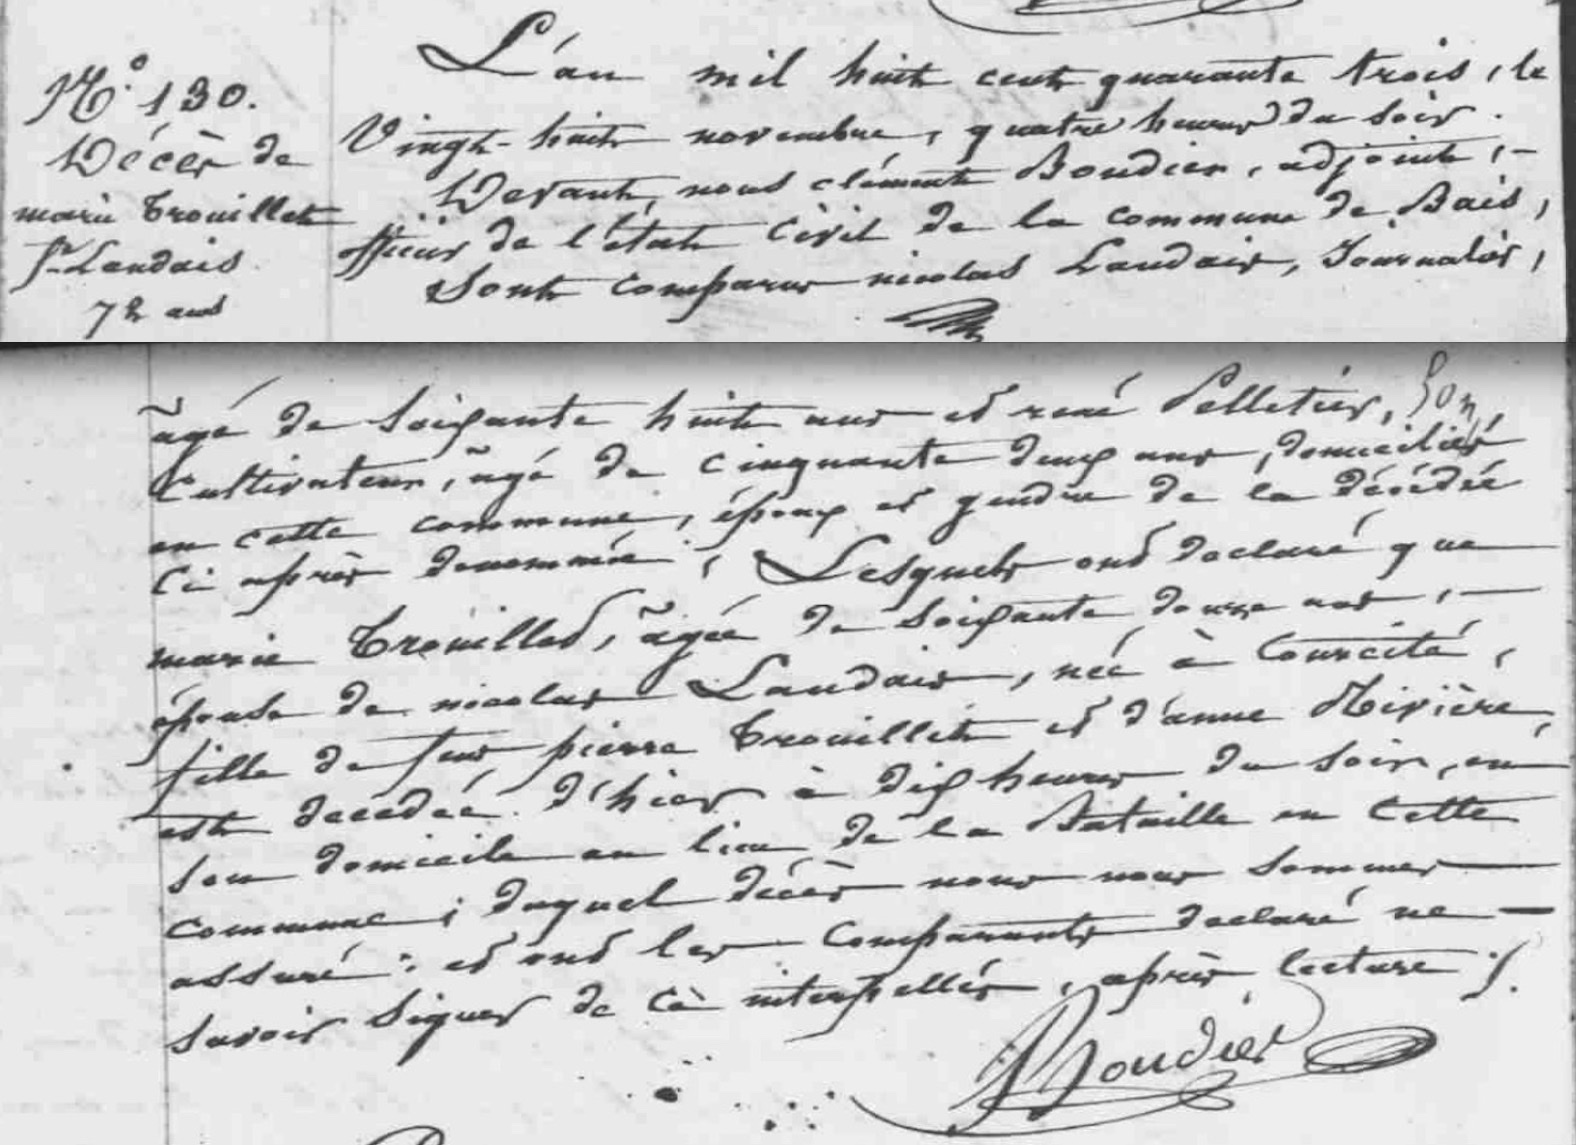 N.° 130.
Décès de
marie Trouillet
fe Landais
72 ans
L'an mil huit cent quarante trois, le
Vingt-huit novembre, quatre heures du soir.
Devant, nous clément Boudier, adjoint,
officier de l'état civil de la commune de Bais,
Sont comparus nicolas Landais, Journalier,
âgé de soixante huit ans et rené Pelletier, son,
Cultivateur, âgé de cinquante deux ans, domiciliés
en cette commune, époux et gendre de la décédée
Ci après denommée ; Lesquels ont declaré que
marie Trouillet, âgée de soixante douze ans,
épouse de nicolas Landais, née à Courcité,
fille de feus pierre Trouillet et d'anne Rivière,
est décédée d'hier à dix heures du soir, en
son domicile au lieu de la Bataille en cette
commune ; duquel décès nous nous sommes
assuré : et ont les comparants declaré ne
savoir signer de ce interpellés, après lecture ./.
Boudier